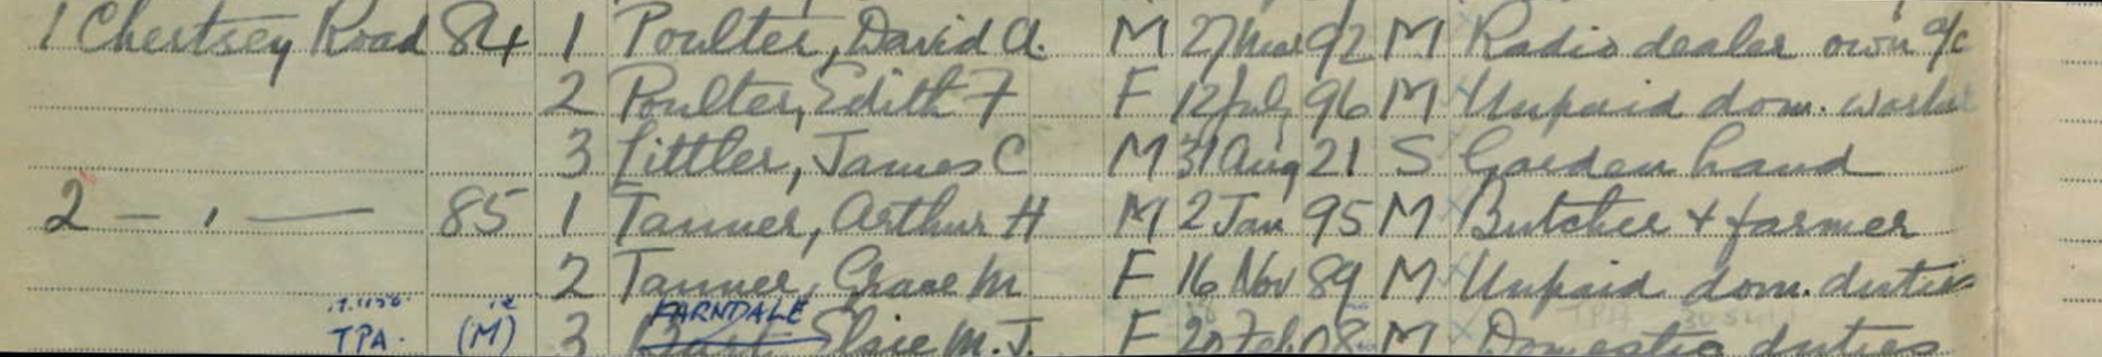 1 Chertsey Road 84 1 Poulter, David A. M 27 Mar 92 M Radio dealer own a/c
2 Poulter, Edith F F 12 July 96 M Unpaid dom. worker
3 Littler, James C M 31 Aug 21 S Garden hand
2 — " — 85 1 Tanner, Arthur H M 2 Jan 95 M Butcher & farmer
2 Tanner, Grace M F 16 Nov 89 M Unpaid dom. duties
FARNDALE
TPA. (M) 3 Elsie M. J. F 20 Feb 08 M Domestic duties